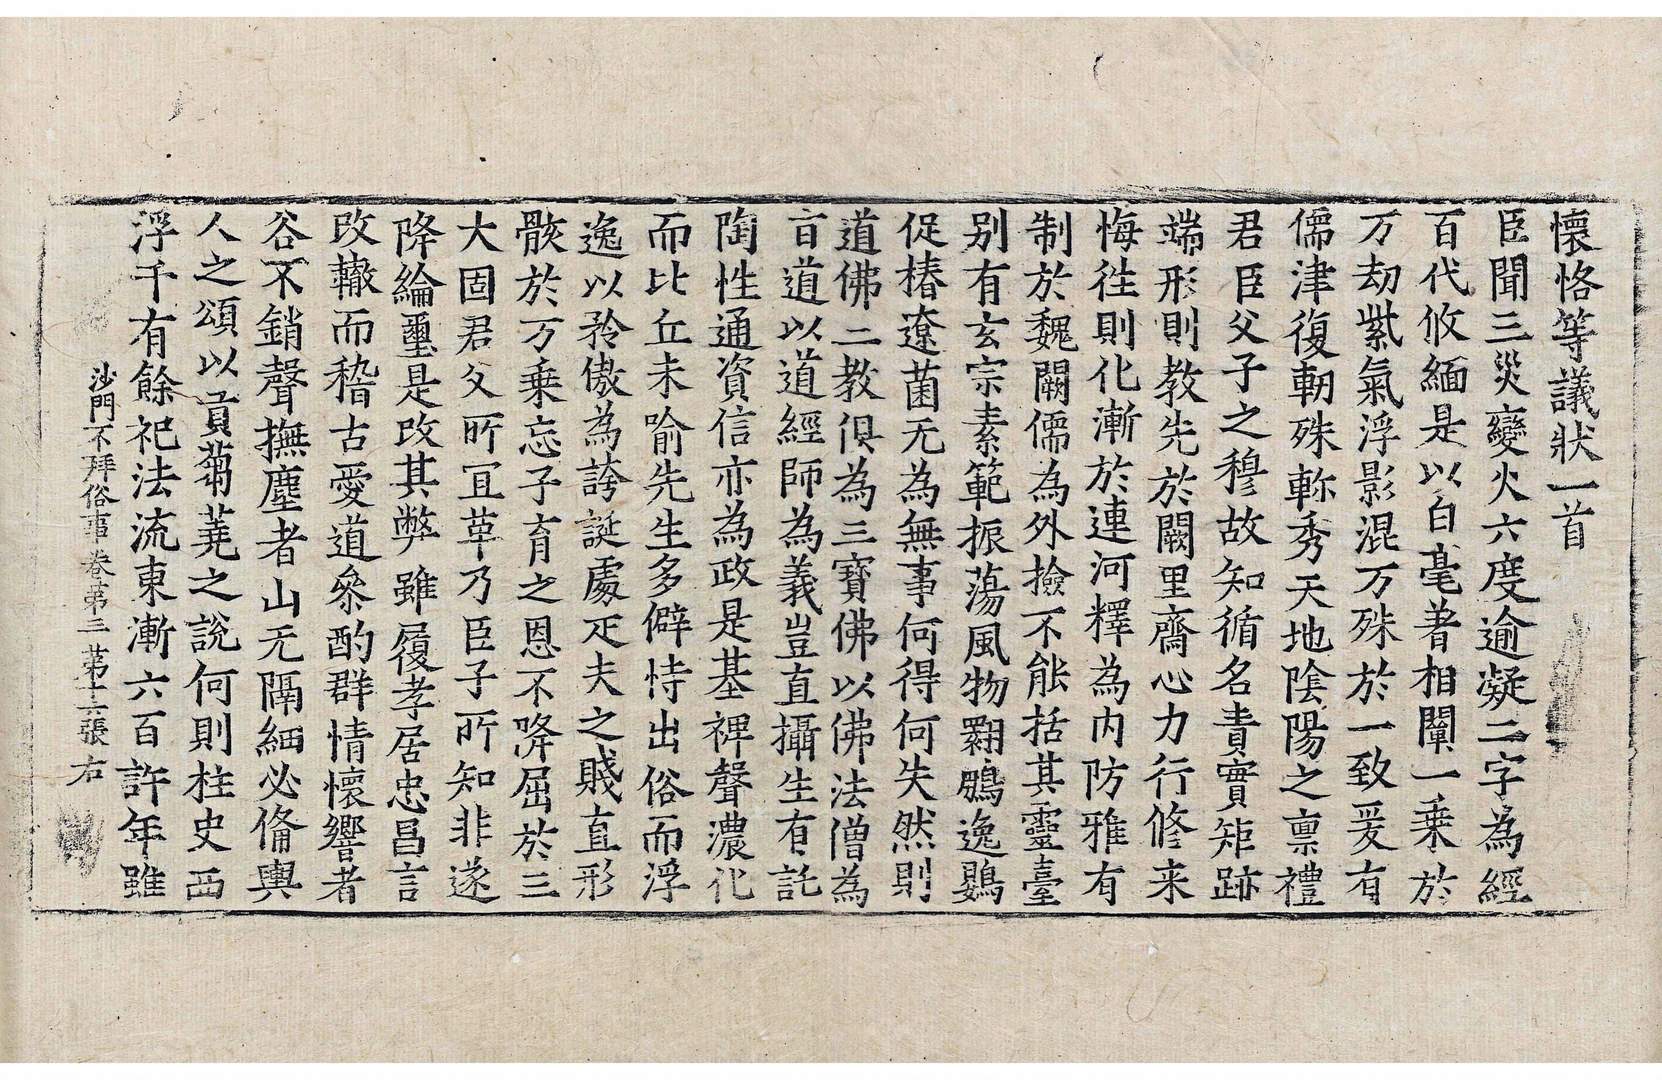 懷恪等議狀一首
臣聞三災變火六度逾凝二字為經
百代攸緬是以白毫著相闡一乗於
万劫紫氣浮影混万殊於一致爰有
儒津復軔殊軫秀天地陰陽之禀禮
君臣父子之穆故知循名責實矩跡
端形則教先於闕里齋心力行修来
悔徃則化漸於連河釋為内防雅有
制於魏闕儒為外撿不能括其靈臺
别有玄宗素範振蕩風物翾鵬逸鷃
促椿遼菌无為無事何得何失然則
道佛二教俱為三寳佛以佛法僧為
旨道以道經師為義豈直攝生有託
陶性通資信亦為政是基裨聲濃化
而比丘未喻先生多僻恃出俗而浮
逸以矜傲為誇誕處疋夫之賤直形
骸於万乗忘子育之恩不降屈於三
大固君父所冝革乃臣子所知非遂
降綸璽是改其弊雖履孝居忠昌言
改轍而稽古愛道叅酌群情懷響者
谷不銷聲撫塵者山无隔細必俻輿
人之頌以貢蒭蕘之說何則柱史西
浮千有餘祀法流東漸六百許年雖
沙門不拜俗事卷第三 第十六張 右